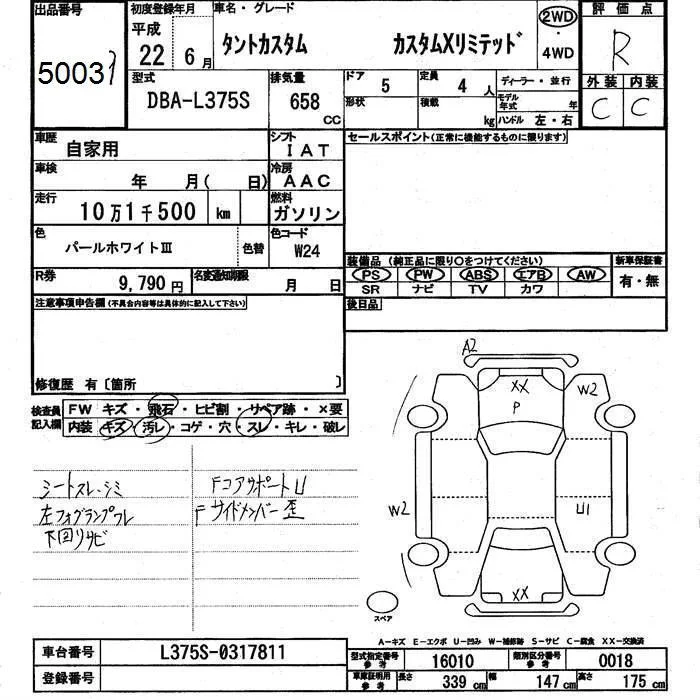 出品番号 50031
初度登録年月 平成 22 6月
車名・グレード タントカスタム カスタムXリミテッド
2WD・4WD
評価点 R
外装 C 内装 C
型式 DBA-L375S
排気量 658 CC
ドア 5 定員 4 人
形状 積載 kg
ディーラー・並行
モデル年式 年
ハンドル 左・右
車歴 自家用
シフト IAT
車検 年 月( 日)
冷房 AAC
走行 10万1千500 km
燃料 ガソリン
色 パールホワイトⅢ 色替
色コード W24
R券 9,790円
名変通知期限 月 日
セールスポイント(正常に機能するものに限ります)
装備品 (純正品に限り○をつけてください) 新車保証書
PS PW ABS エアB AW 有・無
SR ナビ TV カワ
後日品
注意事項申告欄(不具合内容等は具体的に記入して下さい)
修復歴 有〔箇所 〕
検査員記入欄
FW キズ・飛石・ヒビ割・リペア跡・×要
内装 キズ・汚レ・コゲ・穴・スレ・キレ・破レ
シートスレ・シミ
左フォグランプワレ
下回りサビ
FコアサポートU
Fサイドメンバー歪
A2
XX
P
W2
W2
U1
XX
スペア
A-キズ E-エクボ U-凹み W-補修跡 S-サビ C-腐食 XX-交換済
車台番号 L375S-0317811
登録番号
型式指定番号 参考 16010 類別区分番号 参考 0018
車庫証明用 参考 長さ 339 cm 幅 147 cm 高さ 175 cm